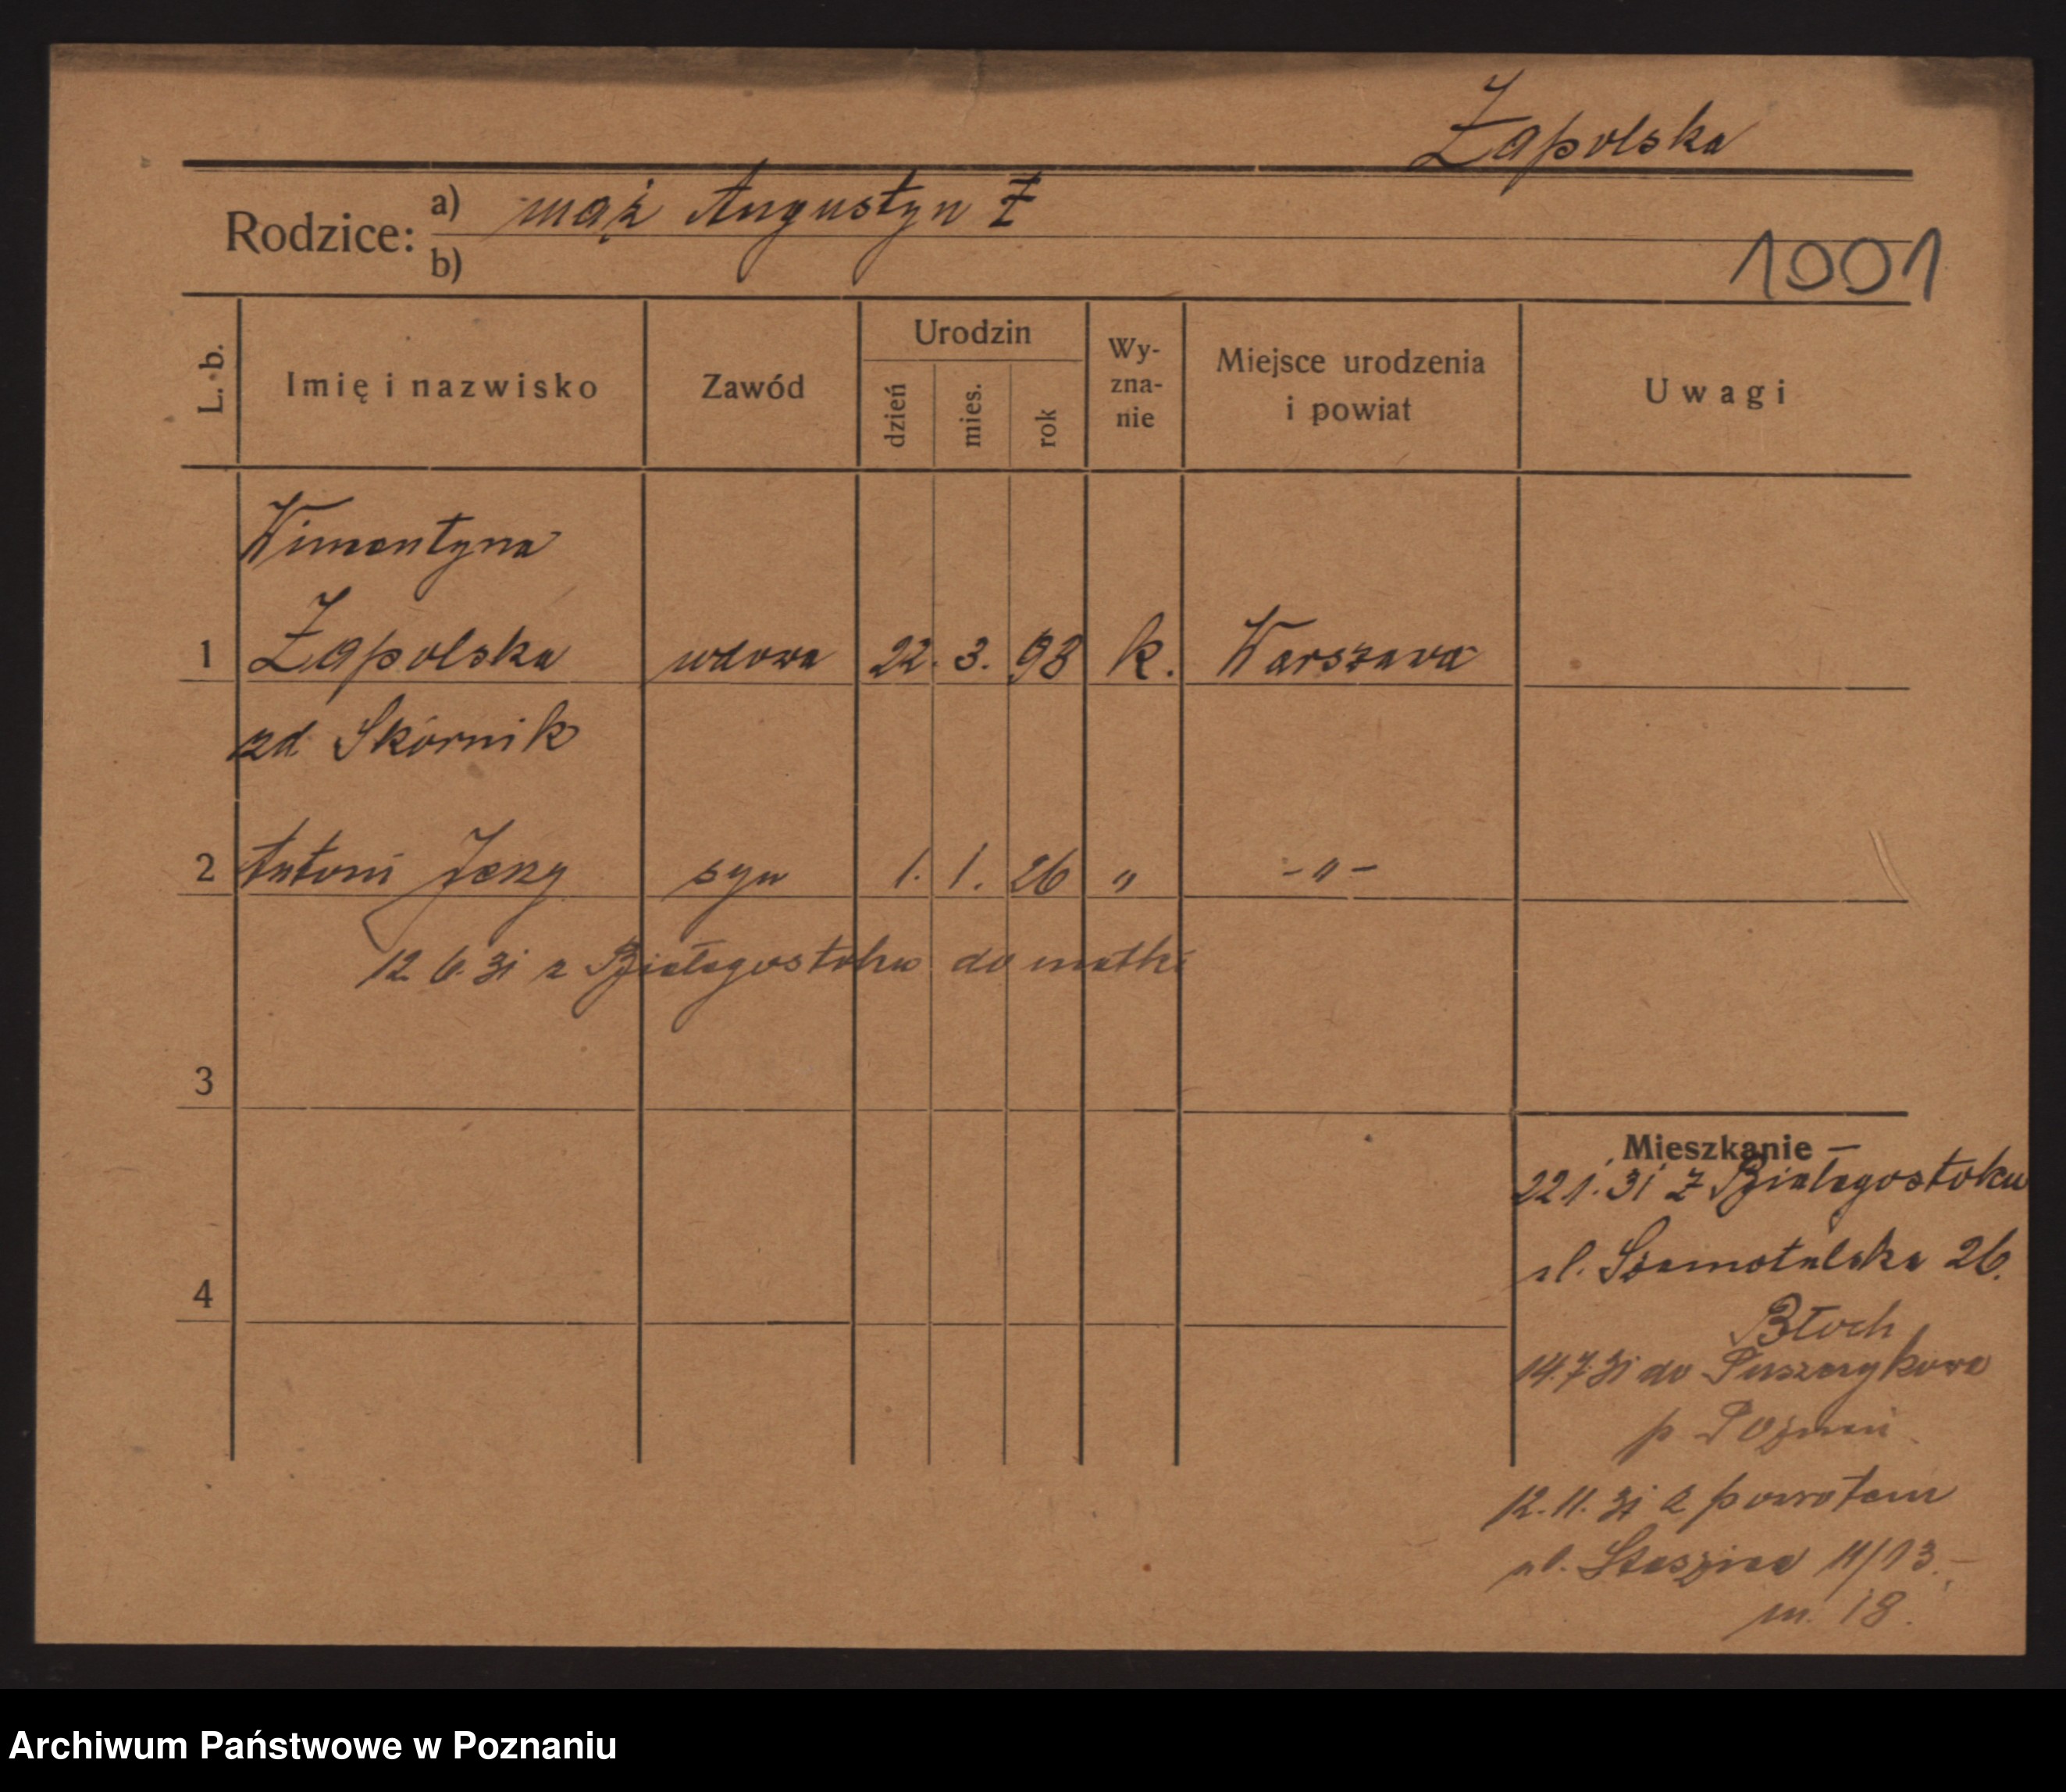 Żapolska
Rodzice: a) mąż Augustyn Ż
b)
1001
L. b. Imię i nazwisko Zawód Urodzin dzień mies. rok Wy-zna-nie Miejsce urodzenia i powiat Uwagi
Wimentyna
1 Żapolska wdowa 22. 3. 98 k. Warszawa
zd Skórnik
2 Antoni Jerzy syn 1. 1. 26 „ -„-
12 6. 31 z Białegostoku do matki
3
4
Mieszkanie –
22 1. 31 z Białegostoku
ul. Szamotulska 26.
Błoch
14.7 31 do Puszczykowa
p Poznań
12.11. 31 z powrotem
ul. Staszica 11/13.-
m. 18.
Archiwum Państwowe w Poznaniu